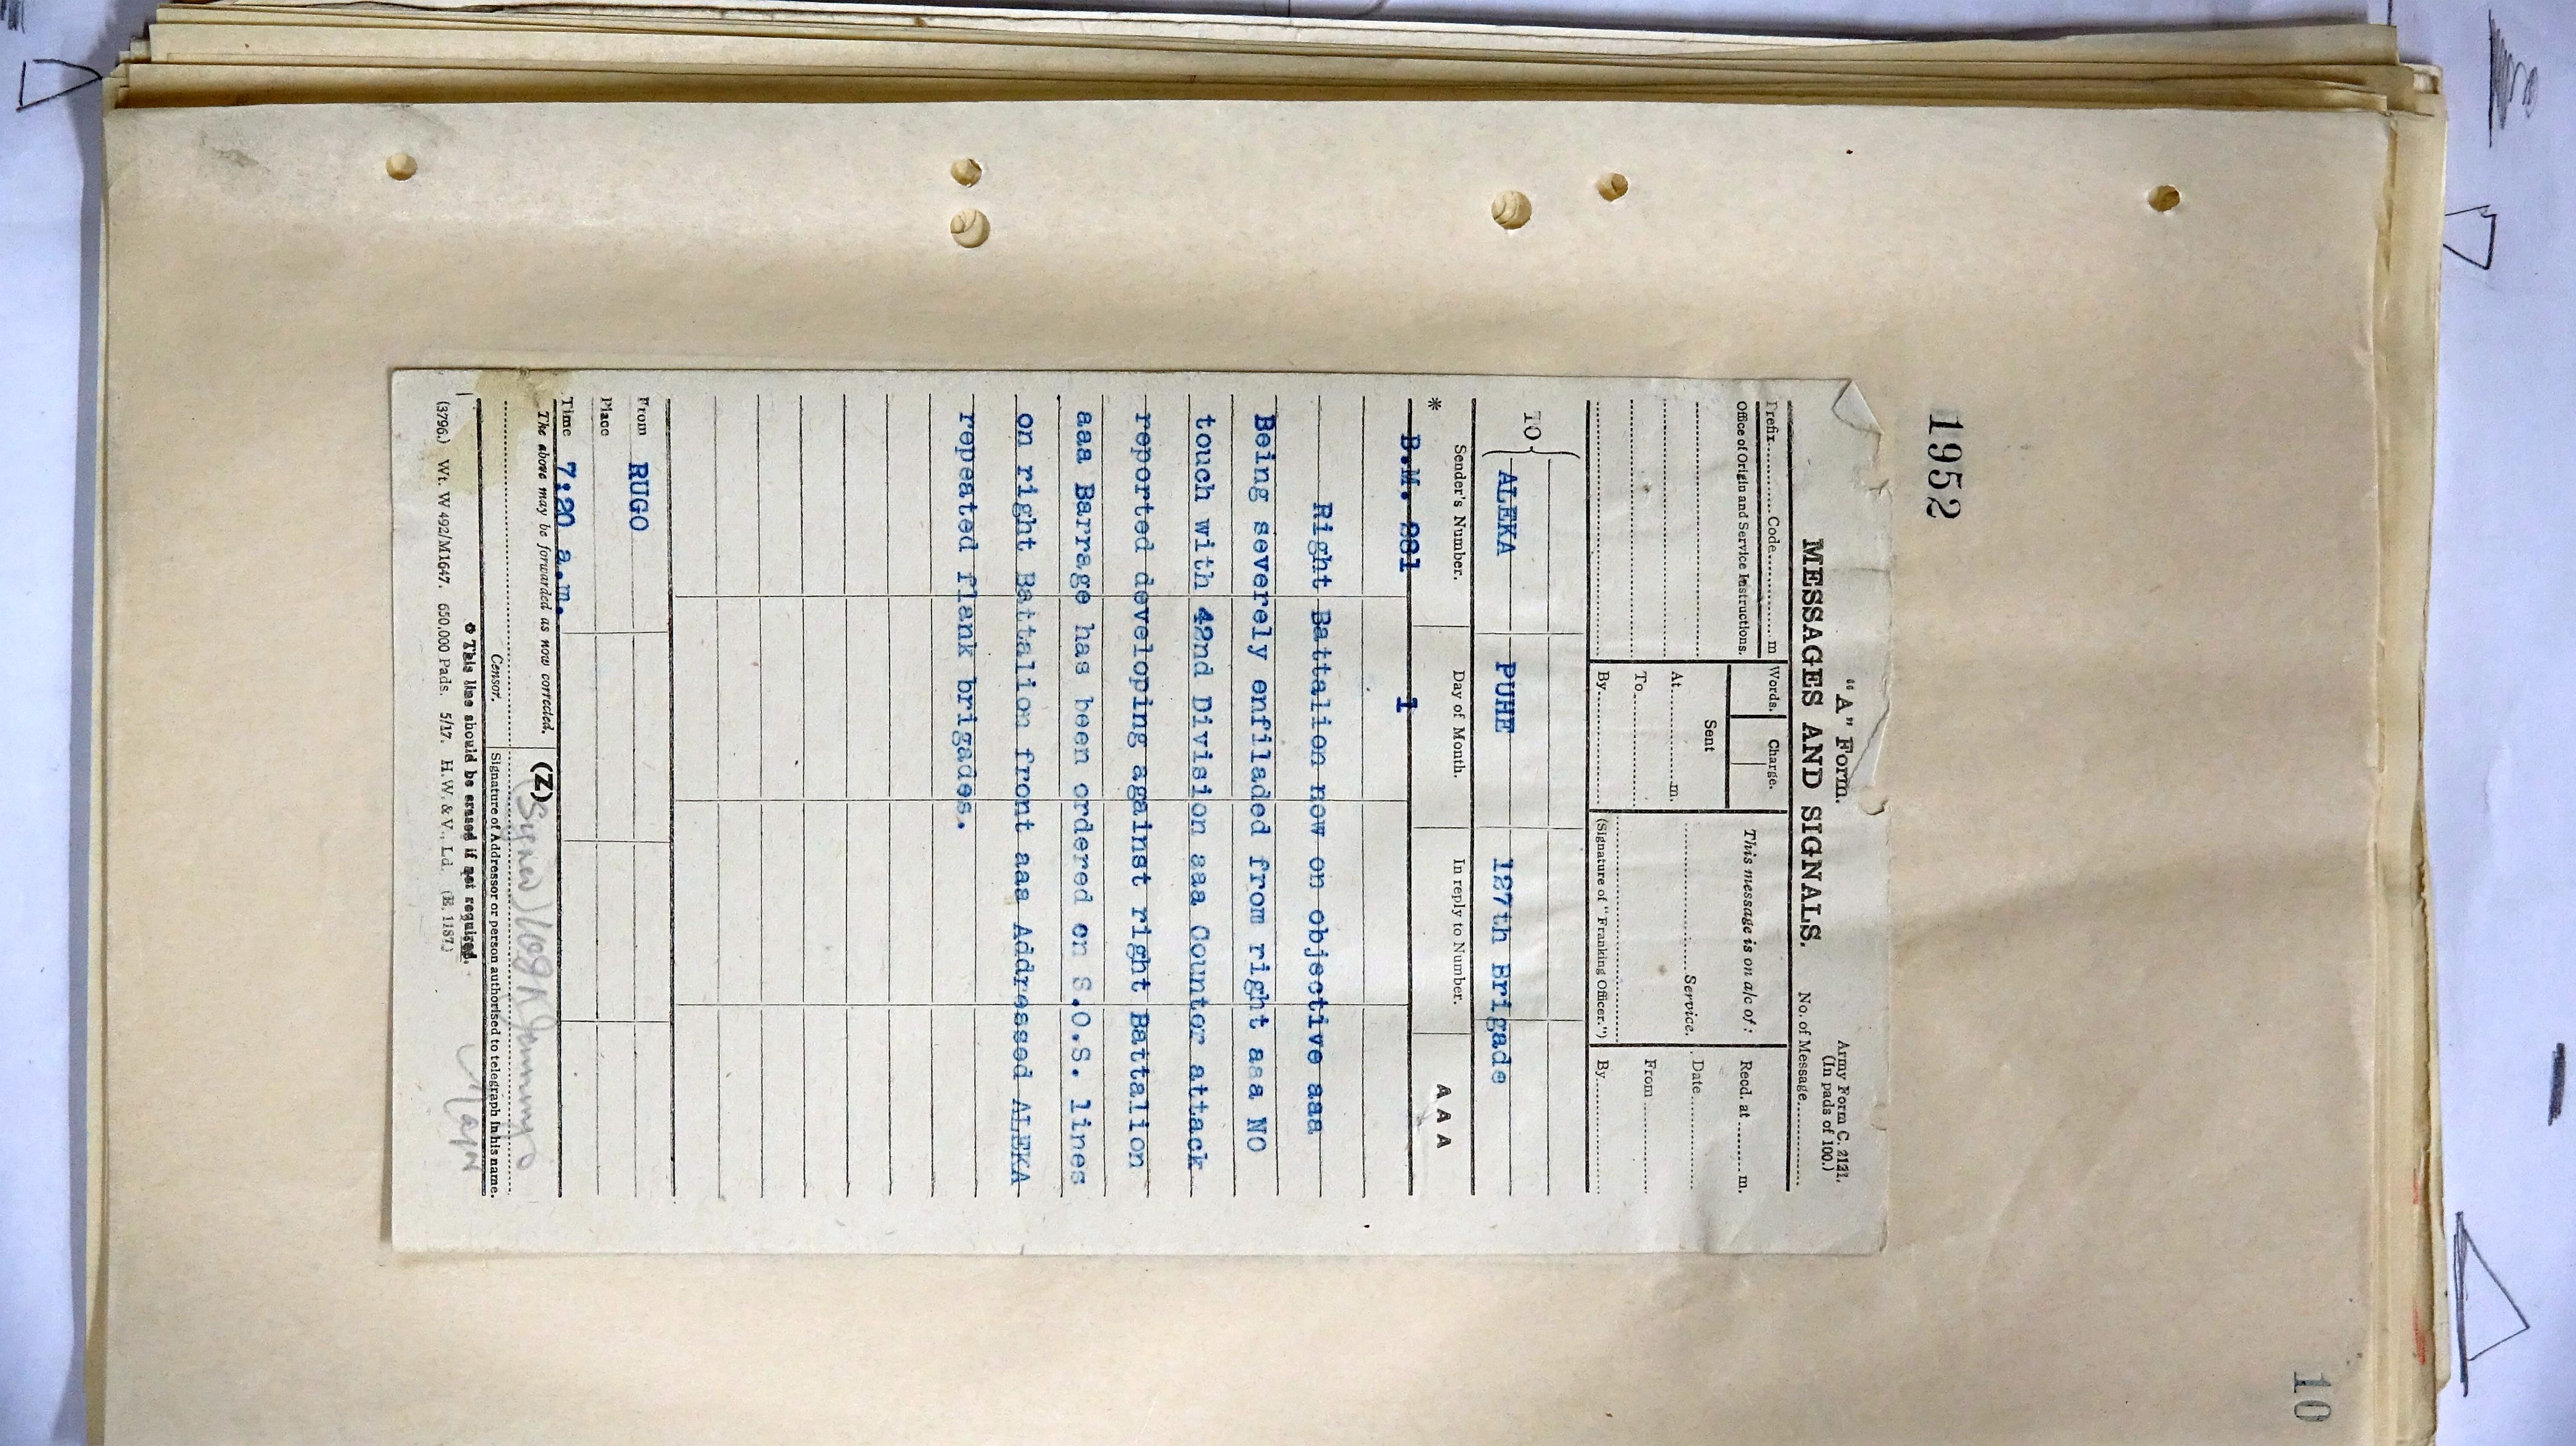 1952
10
"A" Form.
Army Form C. 2121.
(In pads of 100.)
MESSAGES AND SIGNALS.
No. of Message..........
Prefix..........Code..........m
Words.
Charge.
This message is on a/c of :
Recd. at..........m.
Office of Origin and Service Instructions.
Sent
Date..........
At..........m.
..........Service.
From..........
To..........
By..........
(Signature of "Franking Officer.")
By..........
TO
ALEKA PUHE 127th Brigade
Sender's Number.
Day of Month.
In reply to Number.
A A A
* B.M. 981 1
Right Battalion now on objective aaa
Being severely enfiladed from right aaa NO
touch with 42nd Division aaa Counter attack
reported developing against right Battalion
aaa Barrage has been ordered on S.O.S. lines
on right Battalion front aaa Addressed ALEKA
repeated flank brigades.
From RUGO
Place
Time 7:20 a.m.
The above may be forwarded as now corrected. (Z)
(Signed)
Censor.
Signature of Addressor or person authorised to telegraph in his name.
* This line should be erased if not required.
(3796.) Wt. W 492/M1647. 650,000 Pads. 5/17. H.W. & V., Ld. (E. 1187.)